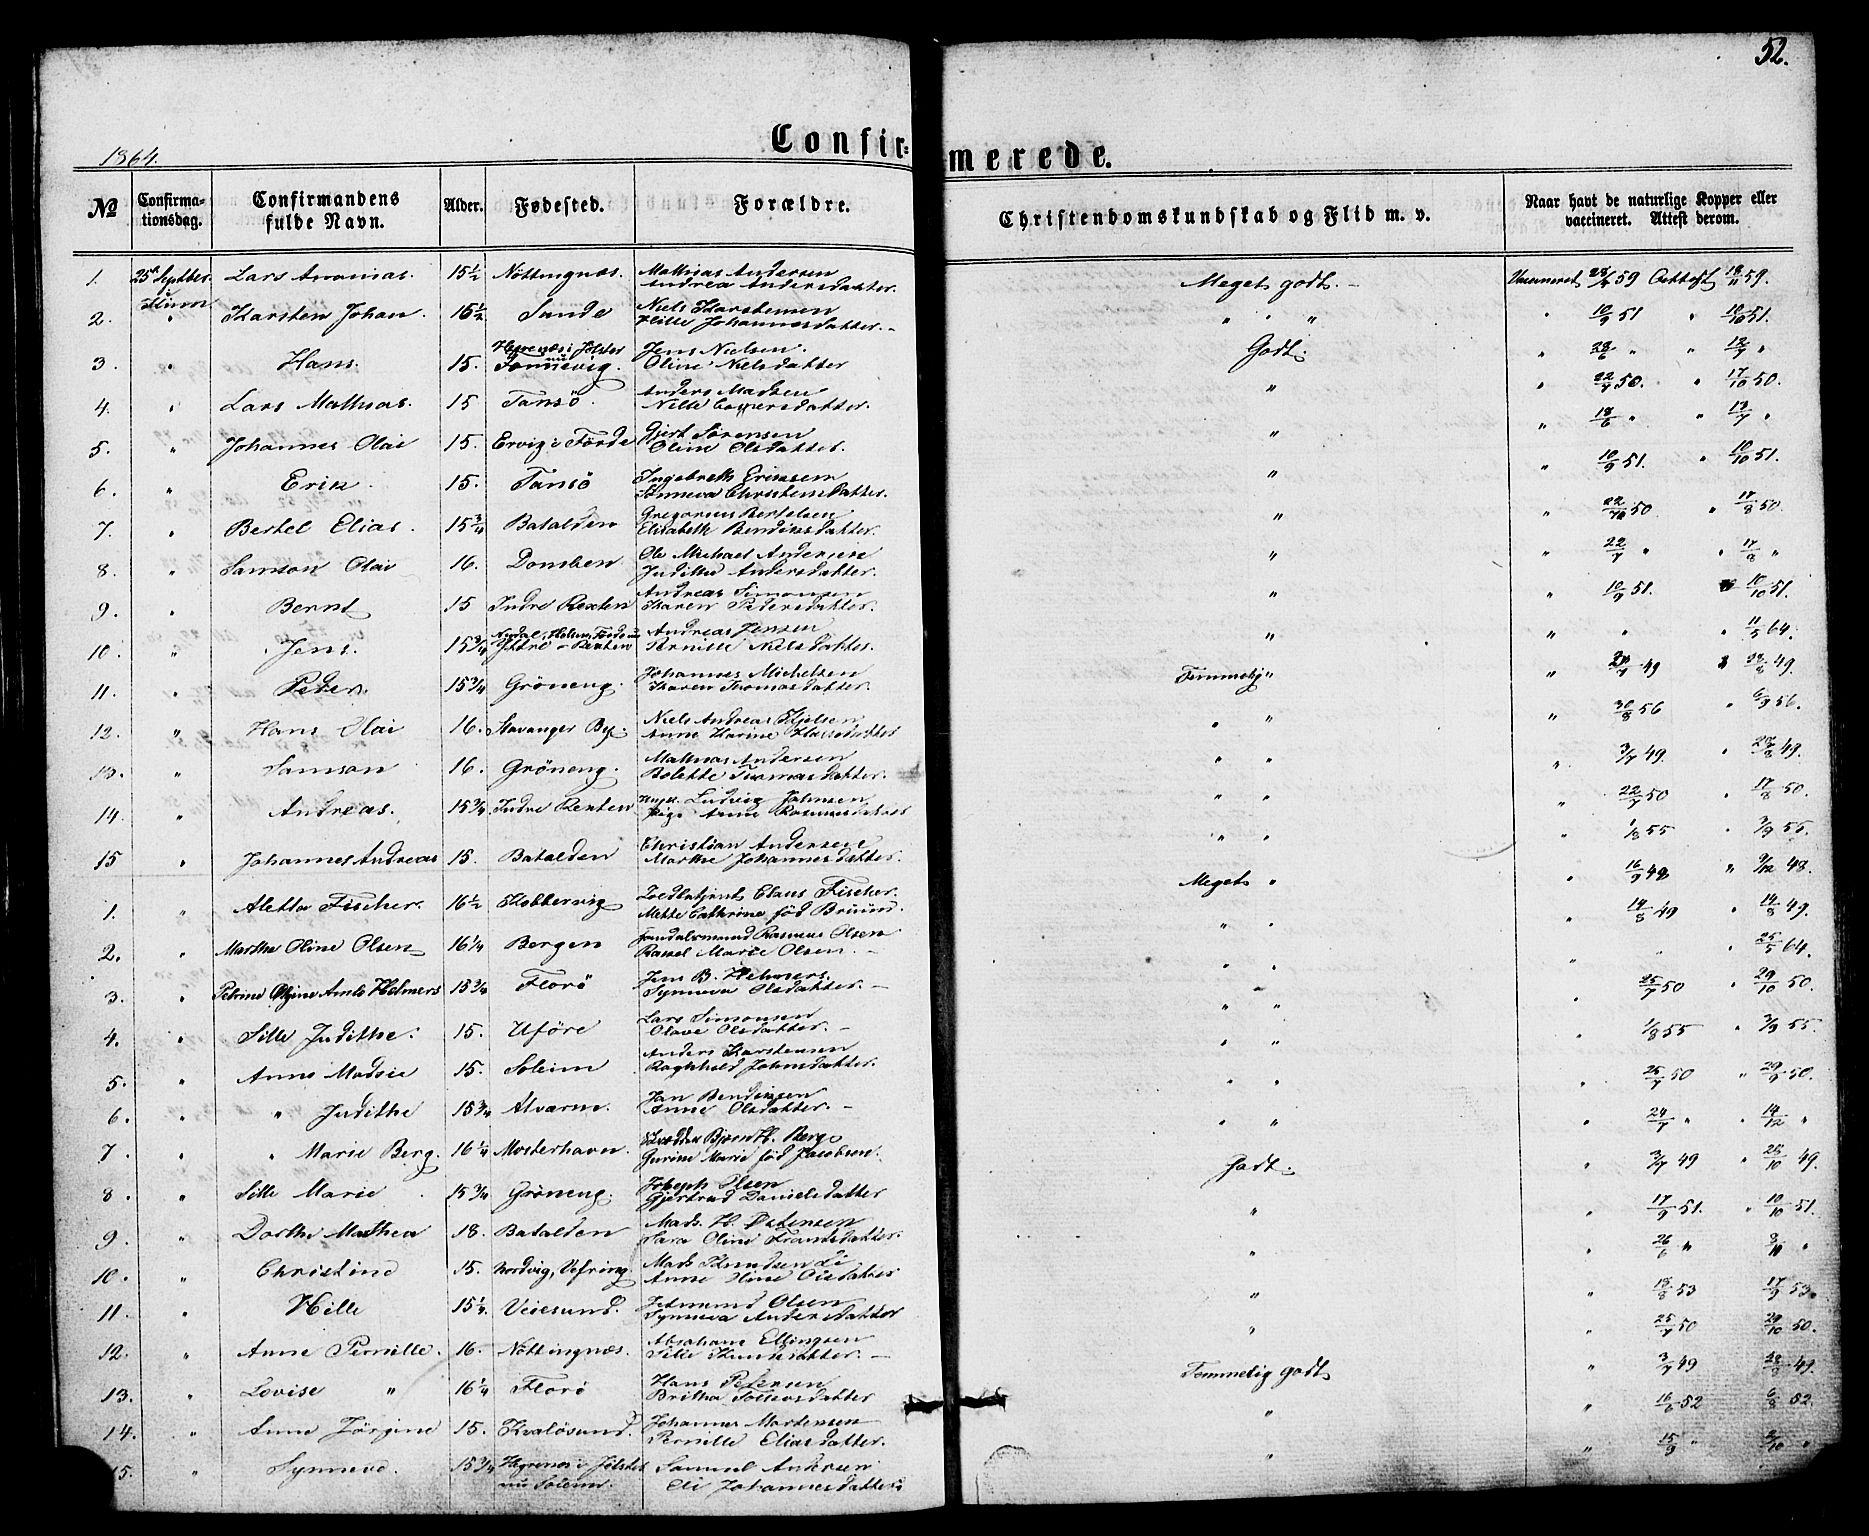 52.
1864.
Confir=
merede.
No
Confirma-
tionsdag.
Confirmandens
fulde Navn.
Alder.
Fødested.
Forældre.
Christendomskundskab og Flid m. v.
Naar havt de naturlige Kopper eller
vaccineret. Attest derom.
1. 25de Septbr. Lars Ananias. 15½ Nöttingnæs. Mathias Andersen
Andrea Andersdatter. Meget godt. Vaccineret 59 Attest 59.
i Kinn
2. " Karsten Johan. 15½ Sunde Niels Karstensen
Hille Johannesdatter. " " " 10/9 51 " 10/10 51.
3. " Hans. 15. Hegrenæs i Jølster
nu Tonnevig. Jens Nielsen.
Oline Nielsdatter Godt. " 28/6 " " "
4. " Lars Mathias. 15 Tansö. Anders Madsen
Nille Caspersdatter. " " 22/7 50. " 17/10 50.
5. " Johannes Olai 15. Ervig i Förde Gjert Sörensen
Oline Olsdatter. " " 18/6 " " "
6. " Erik. 15. Tansö Ingebreth Ericksen
Synneva Christensdatter. " " 10/9 51. " 10/10 51.
7. " Bertel Elias. 15¾ Batalden Gregorius Bertelsen
Elisabeth Bendiksdatter. " " 50. " 17/8 50.
8. " Samson Olai 16. Domben Ole Michael Andersen
Judithe Andersdatter. " " 22/7 " " 17/8 "
9. " Bernt 15 Indre Rexten Andreas Simonsen
Karen Pedersdatter. " " 10/9 51. 10/10 51.
10. " Jens. 15¾ Ytre-Rexten Andreas Jensen
Pernille Nielsdatter. " " " " 11/5 64.
11. " Peder. 15¾ Gröneng. Johannes Michelsen
Karen Thomasdatter. Temmelig " " 49 49.
12. " Hans Olai 16. Stavanger By. Niels Andreas Kjelsen
Anne Karine " " " 30/8 56 " 6/9 56.
13. " Samson 16. Gröneng. Mathias Andersen
Bolette Thomasdatter. " " " 3/7 49. " 49.
14. " Andreas. 15¾ Indre Rexten Ungk. Ludvig Johnsen
Pige Anne Rasmusdatter " " " 22/7 50 " 17/8 50.
15 " Johannes Andreas 15. Batalden Christian Andersen
Marthe Johannesdatter. " " " 1/8 55 " 3/9 55.
1. " Aletta Fischer. 16½ Kobbervig Claus Fischer.
Mette Cathrine föd Bruun. Meget " " 16/9 48 " 9/12 48.
2. " Marthe Oline Olsen 16¼ Bergen Rasmus Olsen
Rakel Marie Olsen. " " " 14/8 49 " 14/8 49.
3. " Petrine Helmers 15¾ Florö Jens B. Helmers.
Synneva Olsdatter. " " " " " 25/5 64.
4. " Sille Judithe. 15. Uföre Lars Simonsen
Olave Olsdatter. " " " 25/7 50 29/10 50.
5. " Anne Madsie 15. Soleim Anders Karstensen
Raghild Johnsdatter. " " " 1/8 55 " 3/9 55.
6. " " Judithe 15¾ Alvarne. Jan Bendixsen
Anne Olsdatter. " " " 25/7 50 " 50.
7. " " Marie Berg. 16¼ Mosterhavn. Berg
Gurine Marie föd Jacobsen. " " " 24/7 " " 14/12 "
8. " Sille Marie 15¾ Gröneng. Joseph Olsen
Gjertrud Danielsdatter Godt. " 3/7 49 " 49.
9. " Dorthe Mathea 18. Batalden Mads H. Östensen
Sara Oline Fransdatter. " " 17/9 51. " 10/10 51.
10. " Christine 15. Nordvig, Vefring. Mads Knudsen
Anne Oline Olsdatter " " 26/6 " " "
11. " Hille 15¼. Veiesund. Edmund Olsen
Synneva Andersdatter " " 18/8 53 17/9 53.
12. " Anne Pernille. 16. Nöttingnæs. Abraham Ellingsen
Sille Knudsdatter. " " 25/7 50 29/10 50.
13. " Lovise " 16¼ Florö Hans Petersen
Britha Tollevsdatter Temmelig godt " 3/7 49 49.
14. " Anne Jörgine 15. Kvalösund. Johannes Mortensen
Pernille Eliasdatter. " " 16/6 52 6/8 52.
15. " Synneve. 15¾ Hegrenæs i Jølster
nu Soleim. Samuel Andersen
Eli Johannesdatter. " " 15/9 " "